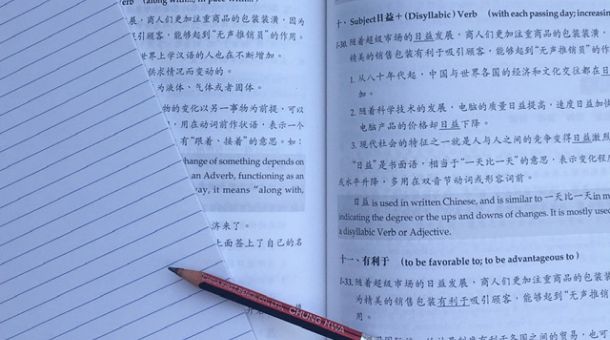 (along with..., in pace with...)
，商人们更加注重商品的包装装潢，因为
吸引顾客，能够起到“无声推销员”的作用。
世界上学汉语的人也在不断增加。
供求情况而变动的。
为液体、气体或者固体。
物的变化以另一事物为前提，可以
，用在动词前作状语，表示一个
有“跟着、接着”的意思。如：
change of something depends on
an Adverb, functioning as an
way, it means "along with,
济来了。
上面签上了自己的名
十、Subject日益＋(Disyllabic) Verb (with each passing day; increasing
1-30. 随着超级市场的日益发展，商人们更加注重商品的包装装潢，
精美的销售包装有于吸引顾客，能够起到“无声推销员”的作
1. 从八十年代起，中国与世界各国的经济和文化交往都在日
加。
2. 随着科学技术的发展，电脑的质量日益提高，速度日益加快
电脑产品的价格却日益下降。
3. 现代社会的特征之一就是人与人之间的竞争变得日益激烈
“日益”是书面语，相当于“一天比一天”的意思，表示变化程度
或水平升降，多用在双音节动词或形容词前。
日益 is used in written Chinese, and is similar to 一天比一天 in m
indicating the degree or the ups and downs of changes. It is mostly used
a disyllabic Verb or Adjective.
十一、有利于 (to be favorable to; to be advantageous to)
1-31. 随着超级市场的发展，商人们更加注重商品的包装装
为精美的销售包装有利于吸引顾客，能够起到“无声推
各国之间的贸易，也可
CHUNG HWA